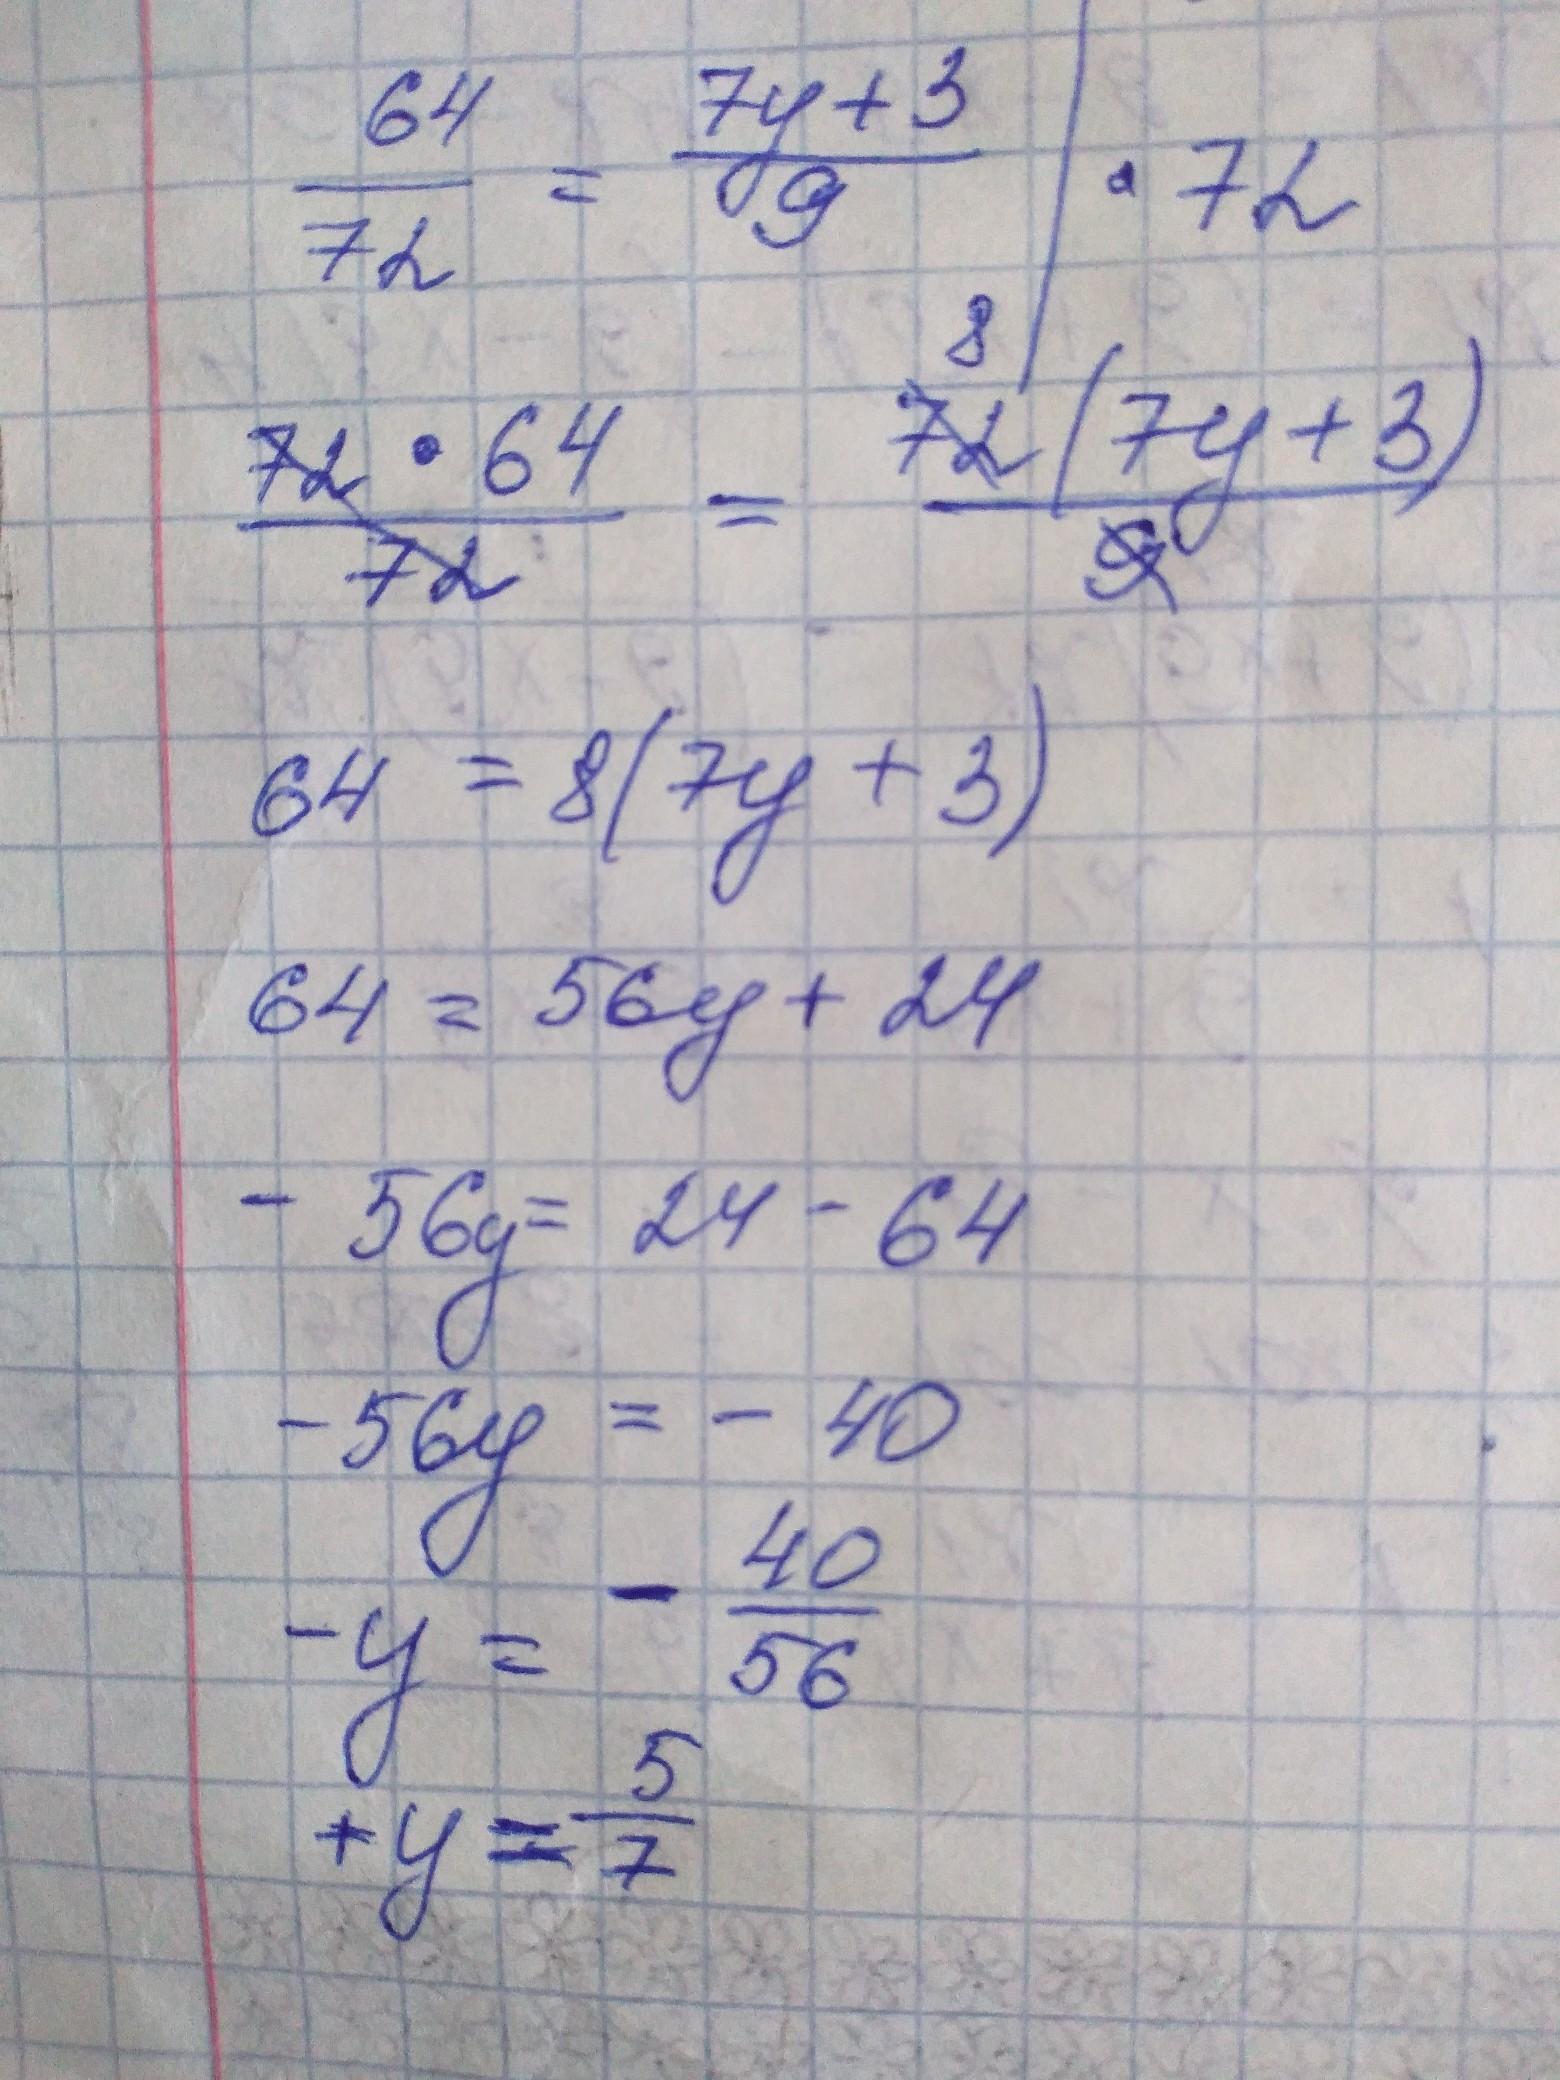 64/72 = 7y+3/9 | · 72
72 · 64/72 = 8 72(7y+3)/9
64 = 8(7y+3)
64 = 56y + 24
- 56y = 24 - 64
-56y = - 40
-y = - 40/56
+y = 5/7